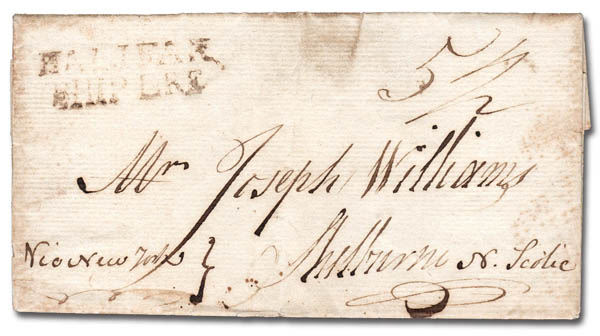 HALIFAX
SHIP LRE
5 1/2
Mr Joseph Williams
Shelburne N. Scotie
Via New York